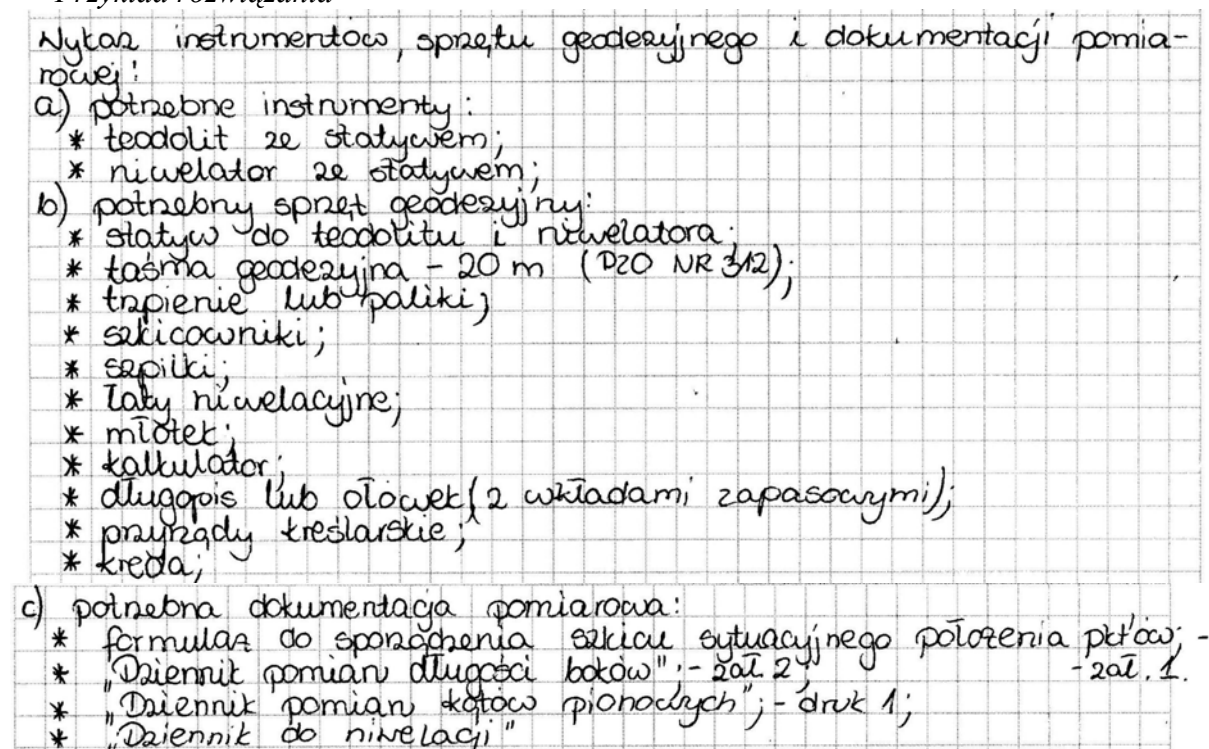 Przykład rozwiązania
Wykaz instrumentów, sprzętu geodezyjnego i dokumentacji pomia-
rowej:
a) potrzebne instrumenty:
* teodolit ze statywem;
* niwelator ze statywem;
b) potrzebny sprzęt geodezyjny:
* statyw do teodolitu i niwelatora;
* taśma geodezyjna - 20 m (DZO NR 312);
* trzpienie lub paliki;
* szkicowniki;
* szpilki;
* łaty niwelacyjne;
* młotek;
* kalkulator;
* długopis lub ołówek (z wkładami zapasowymi);
* przyrządy kreślarskie;
* kreda;
c) potrzebna dokumentacja pomiarowa:
* formularz do sporządzenia szkicu sytuacyjnego położenia pkt'ów; -
- zał. 1.
* "Dziennik pomiaru długości boków"; - zał. 2
* "Dziennik pomiaru kątów pionowych"; - druk 1;
* "Dziennik do niwelacji"